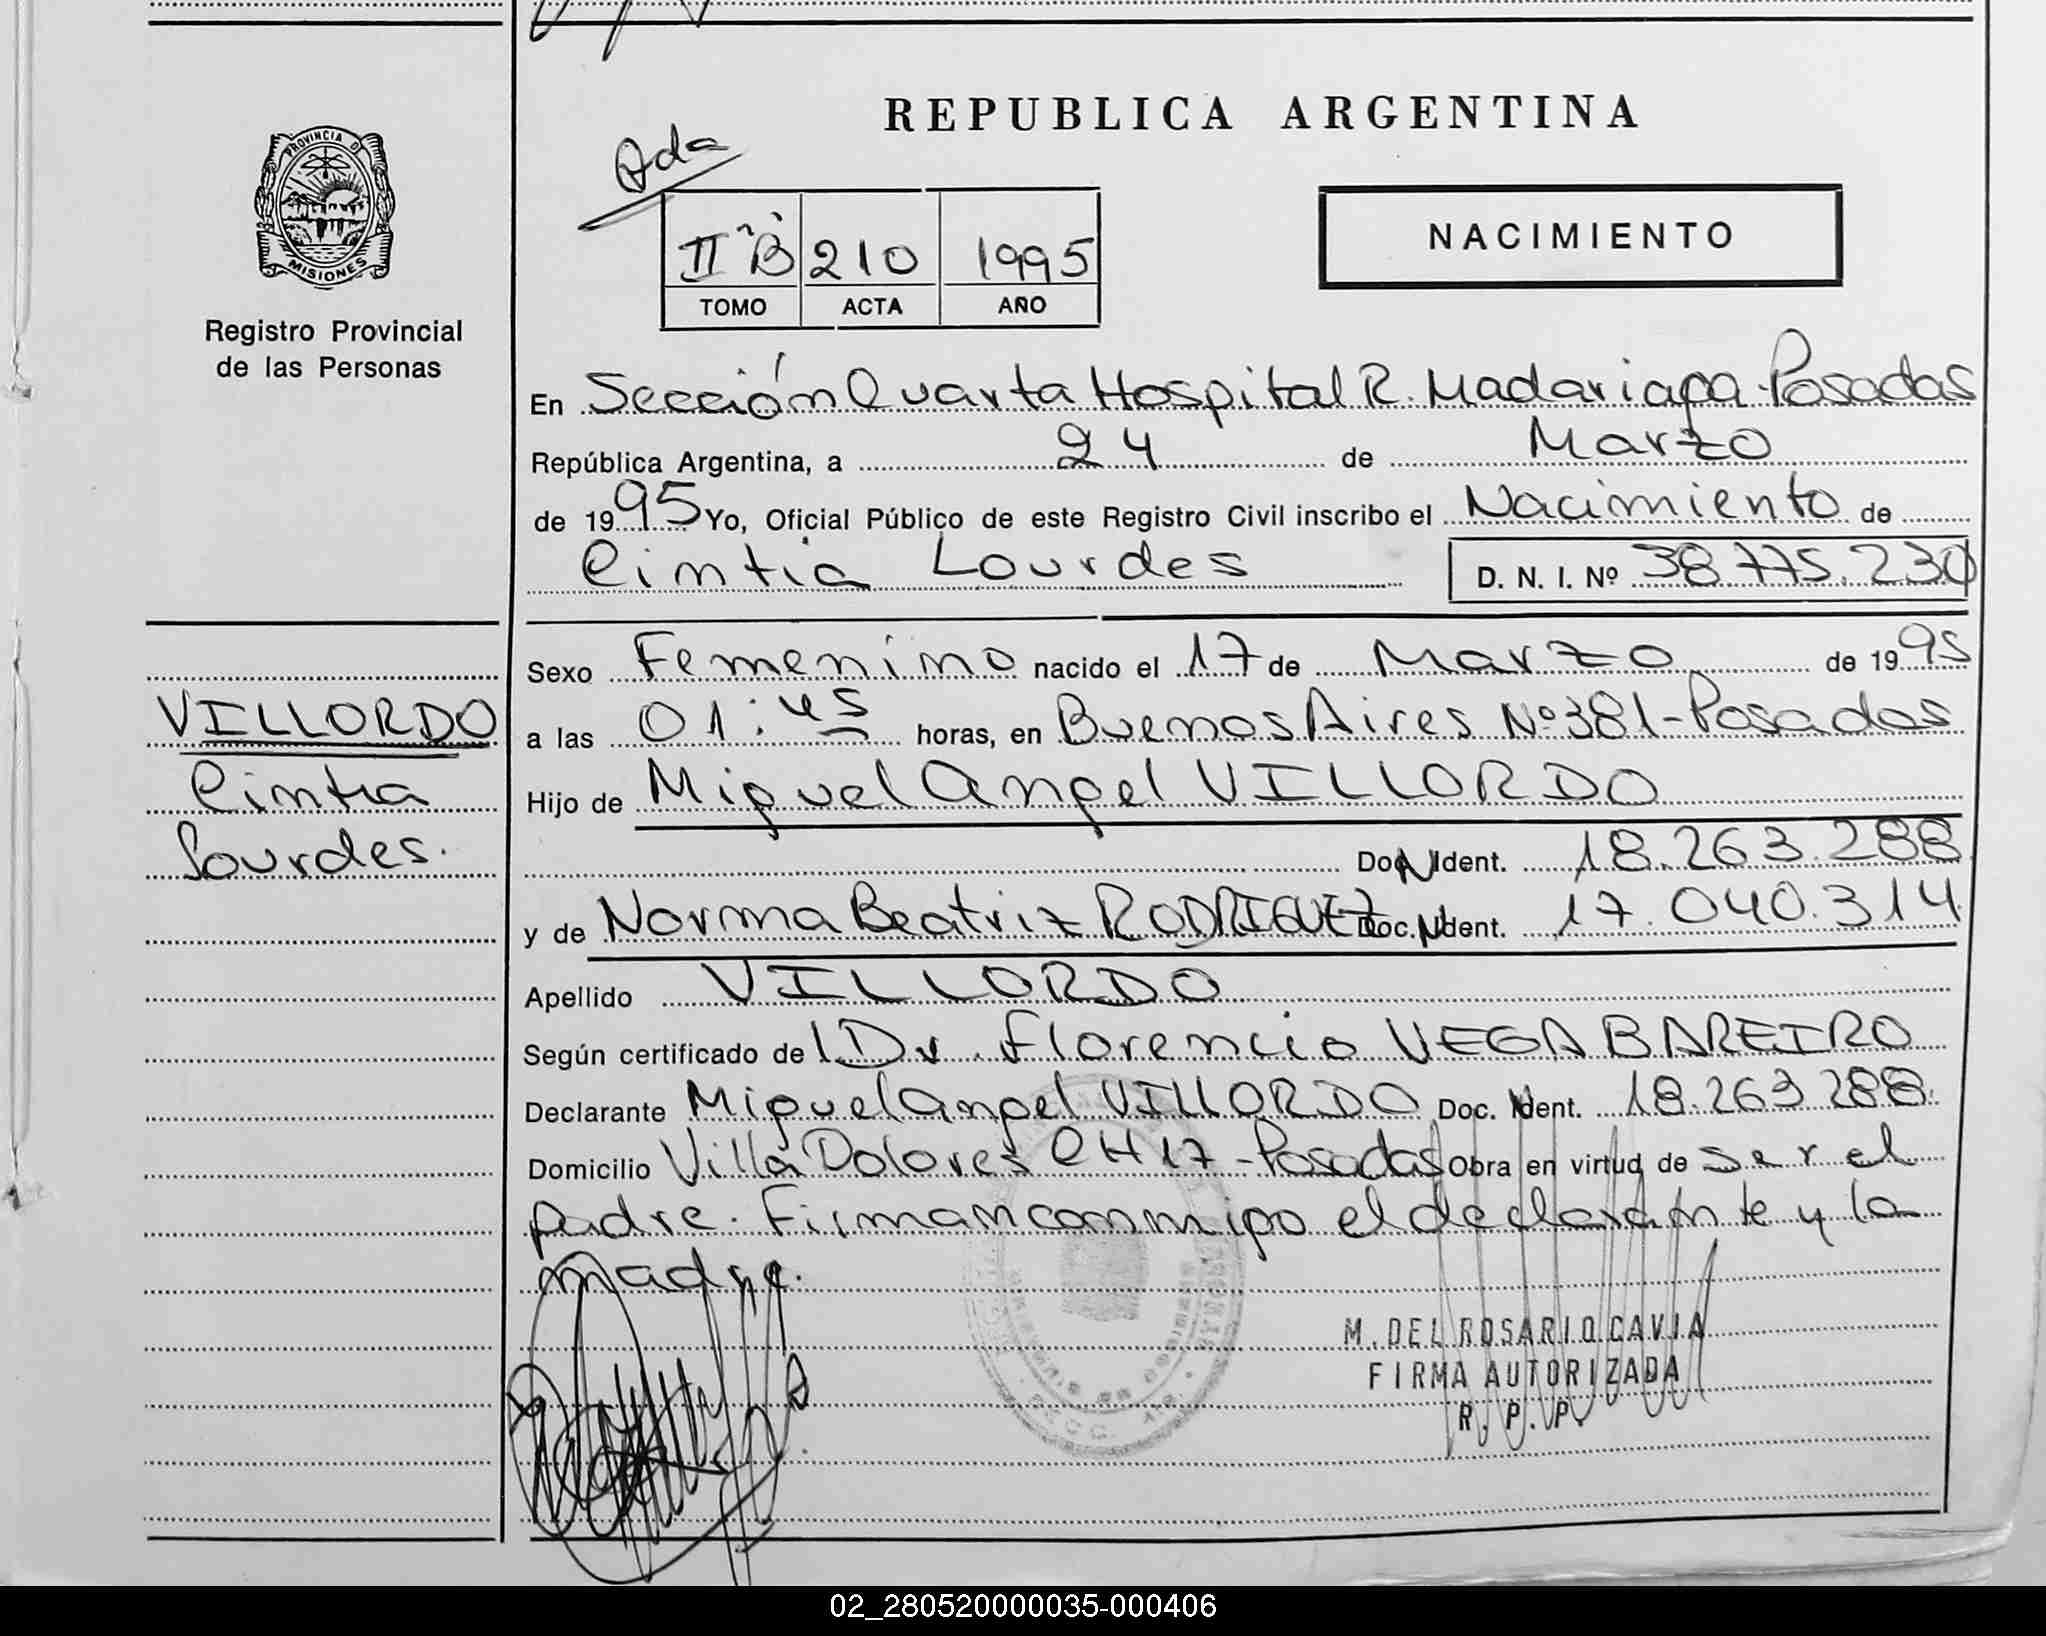 REPUBLICA ARGENTINA
PROVINCIA D
MISIONES
Registro Provincial
de las Personas
Qda
II "B" 210 1995
TOMO ACTA AÑO
NACIMIENTO
En Sección Cuarta Hospital R. Madariaga - Posadas
República Argentina, a 24 de Marzo
de 1995 Yo, Oficial Público de este Registro Civil inscribo el Nacimiento de
Cintia Lourdes D. N. I. Nº 38.775.230
Sexo Femenino nacido el 17 de Marzo de 1995
VILLORDO
Cintia
Lourdes.
a las 01:45 horas, en Buenos Aires Nº 381 - Posadas
Hijo de Miguel Angel VILLORDO
Doc. Ident. 18.263.288
y de Norma Beatriz RODRIGUEZ Doc. Ident. 17.040.314
Apellido VILLORDO
Según certificado de Dr. Florencio VEGA BAREIRO
Declarante Miguel Angel VILLORDO Doc. Ident. 18.263.288.
Domicilio Villa Dolores CH 17 - Posadas Obra en virtud de ser el
padre. Firman conmigo el declarante y la
madre.
M. DEL ROSARIO CAVIA
FIRMA AUTORIZADA
R. P. P.
02_280520000035-000406